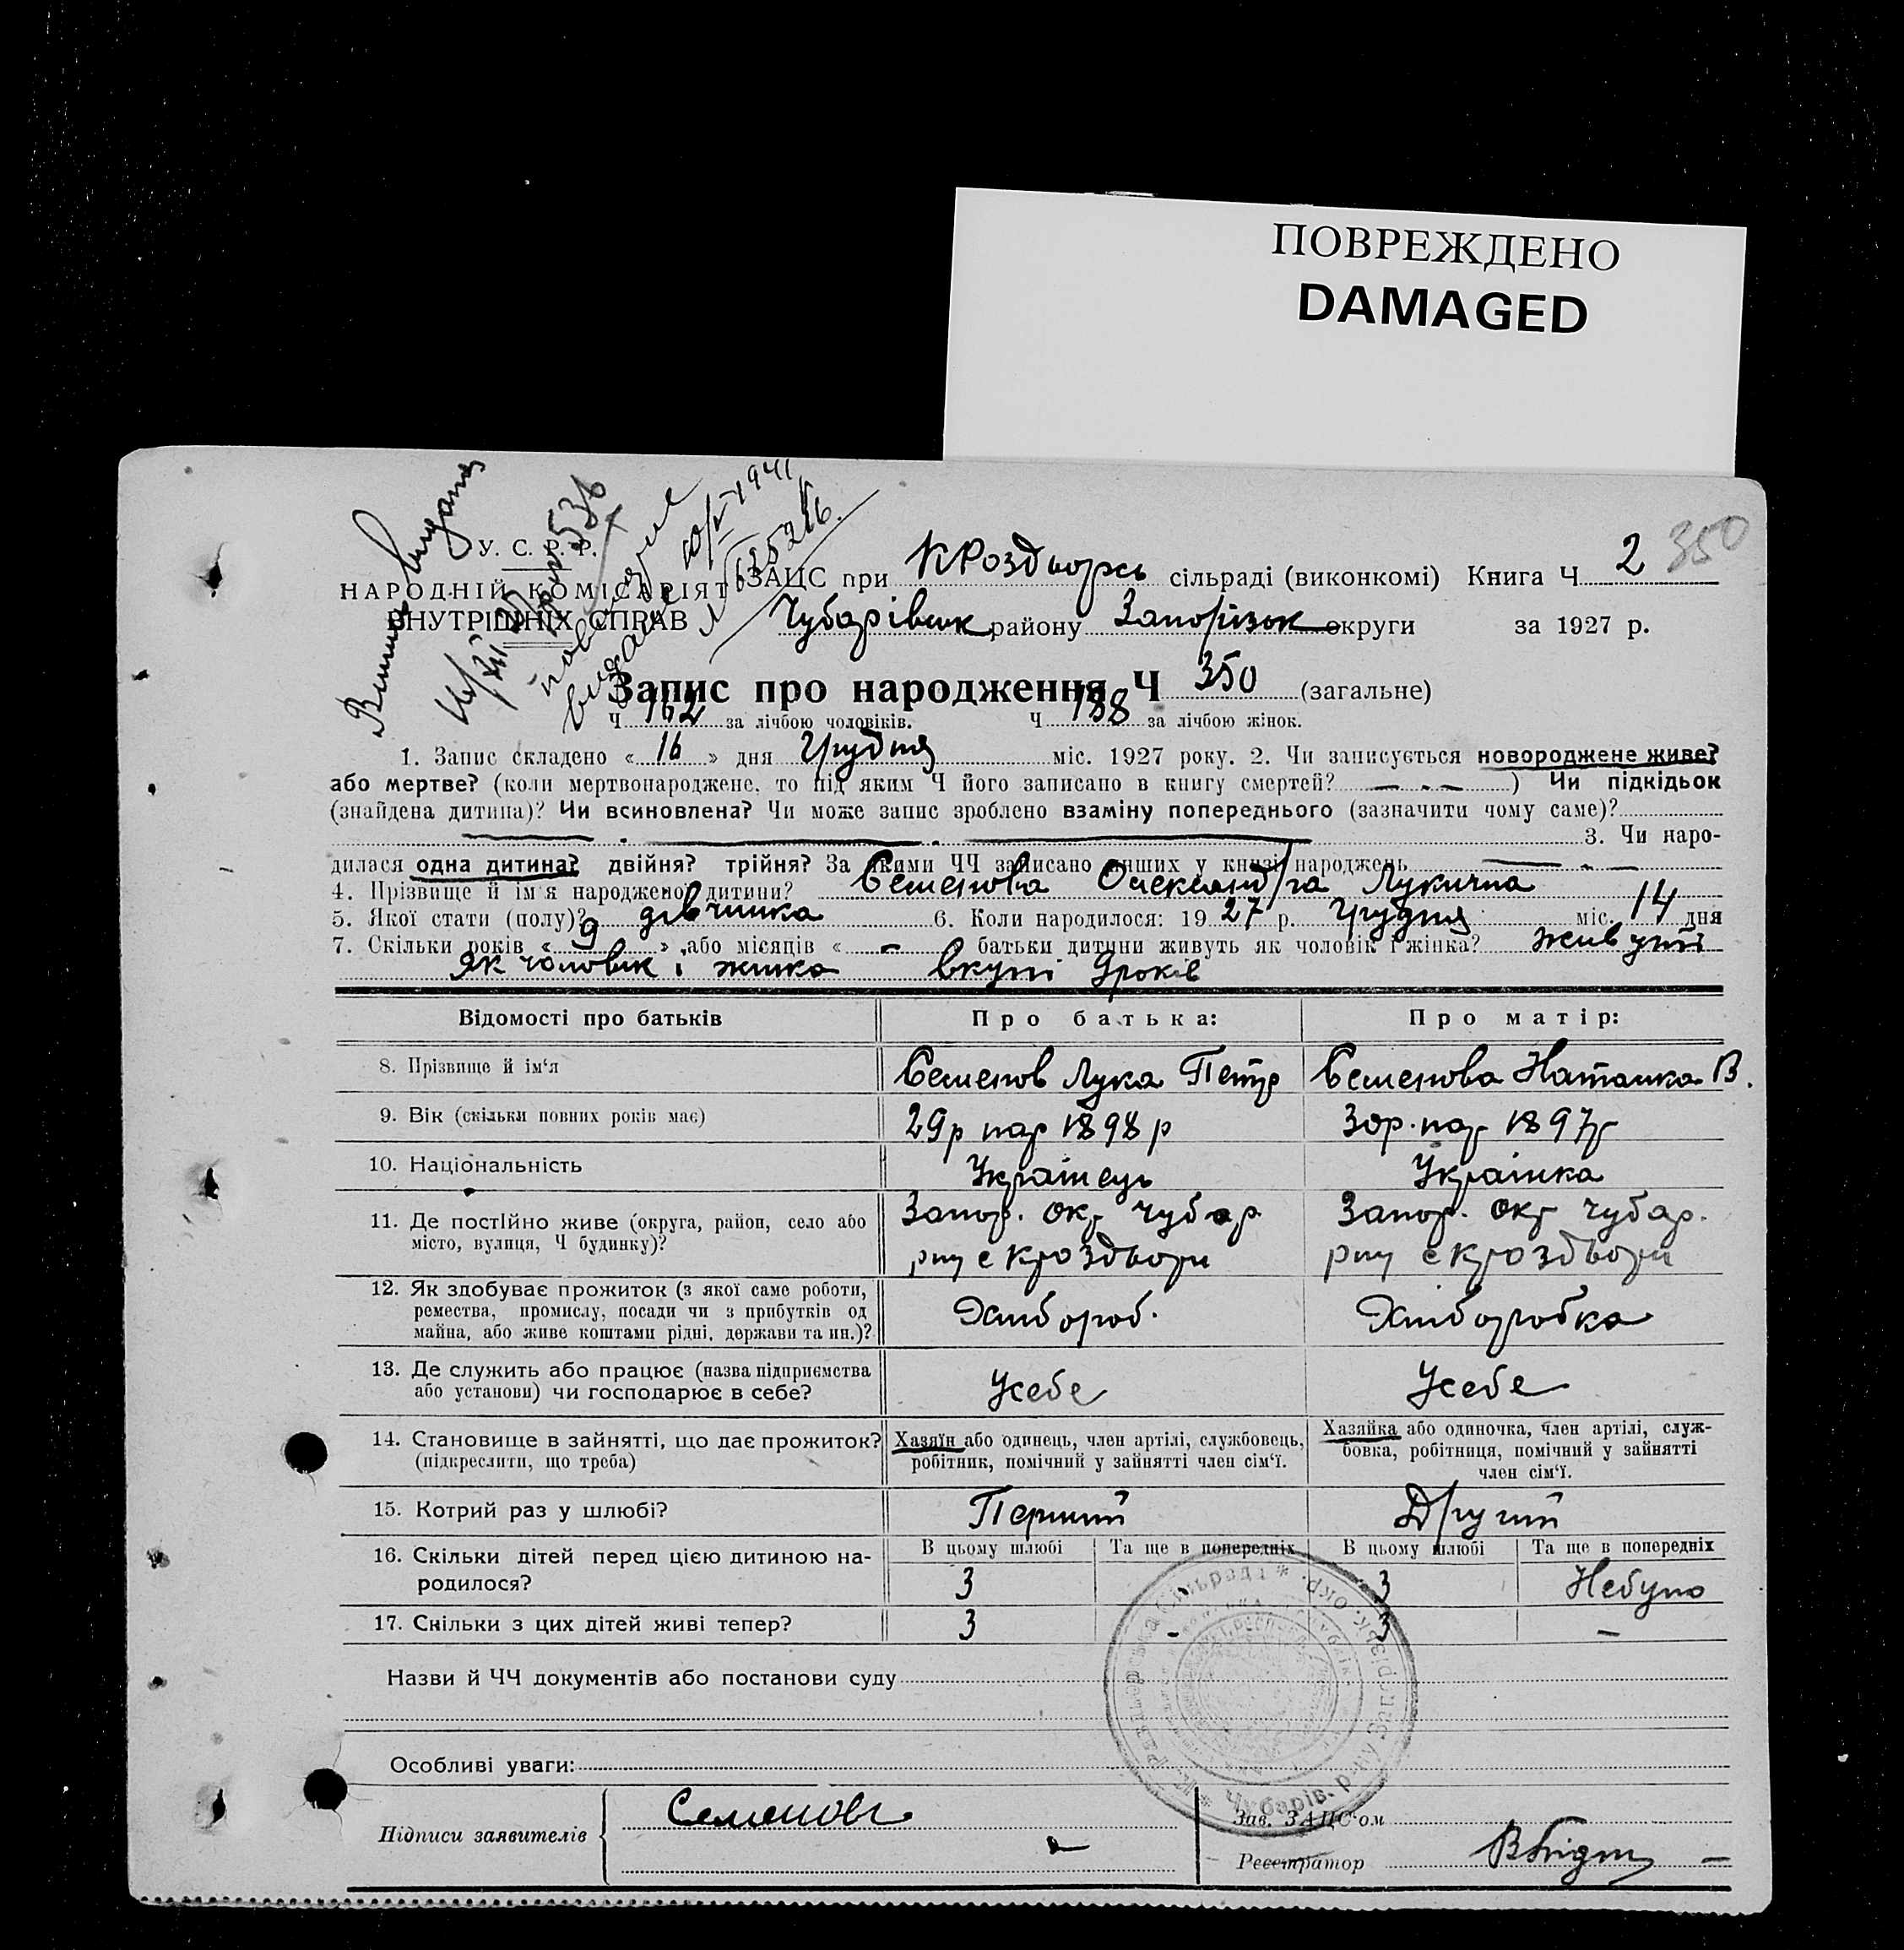 ПОВРЕЖДЕНО
DAMAGED
350
У. С. Р. Р.
НАРОДНІЙ КОМІСАРІЯТ
ВНУТРІШНІХ СПРАВ
Виписа видана
повторне
видане 10/V-1941
ЗАЦС при КРоздорсь сільраді (виконкомі) Книга Ч 2
Чубарівськ району Запорізьк округи за 1927 р.
Запис про народження Ч 350 (загальне)
Ч 162 за лічбою чоловіків. Ч 188 за лічбою жінок.
1. Запис складено « 16 » дня Грудня міс. 1927 року. 2. Чи записується новороджене живе?
або мертве? (коли мертвонароджене, то під яким Ч його записано в книгу смертей? — . — ) Чи підкідьок
(знайдена дитина)? Чи всиновлена? Чи може запис зроблено взаміну попереднього (зазначити чому саме)?
3. Чи наро-
дилася одна дитина? двійня? трійня? За якими ЧЧ записано инших у книзі народжень
4. Прізвище й ім'я народженої дитини? Семенова Олександра Лукична
5. Якої стати (полу)? дівчинка 6. Коли народилося: 1927 р. Грудня міс. 14 дня
7. Скільки років « 9 » або місяців « - батьки дитини живуть як чоловік і жінка? живуть
Як чоловік і жинка вкупі 9років
Відомості про батьків Про батька: Про матір:
8. Прізвище й ім'я Семенов Лука Петр Семенова Наталка В.
9. Вік (скільки повних років має) 29р нар 1898 р 30р. нар 1897р
10. Національність Українець Українка
11. Де постійно живе (округа, район, село або місто, вулиця, Ч будинку)?
Запор. окр чубар рну с кроздори
Запор. окр чубар. рну с кроздори
12. Як здобуває прожиток (з якої саме роботи, ремества, промислу, посади чи з прибутків од майна, або живе коштами рідні, держави та ин.)?
Хлібороб. Хліборобка
13. Де служить або працює (назва підприємства або установи) чи господарює в себе?
Усебе Усебе
14. Становище в зайнятті, що дає прожиток? (підкреслити, що треба)
Хазяїн або одинець, член артілі, службовець, робітник, помічний у зайнятті член сім'ї.
Хазяйка або одиночка, член артілі, служ-
бовка, робітниця, помічний у зайнятті
член сім'ї.
15. Котрий раз у шлюбі? Перший Другий
В цьому шлюбі Та ще в попередніх В цьому шлюбі Та ще в попередніх
16. Скільки дітей перед цією дитиною на-
родилося? 3 3 Небуло
17. Скільки з цих дітей живі тепер? 3 - 3 —
Назви й ЧЧ документів або постанови суду
Особливі уваги:
Підписи заявителів Семенов
Зав. ЗАЦС'ом
Реєстратор